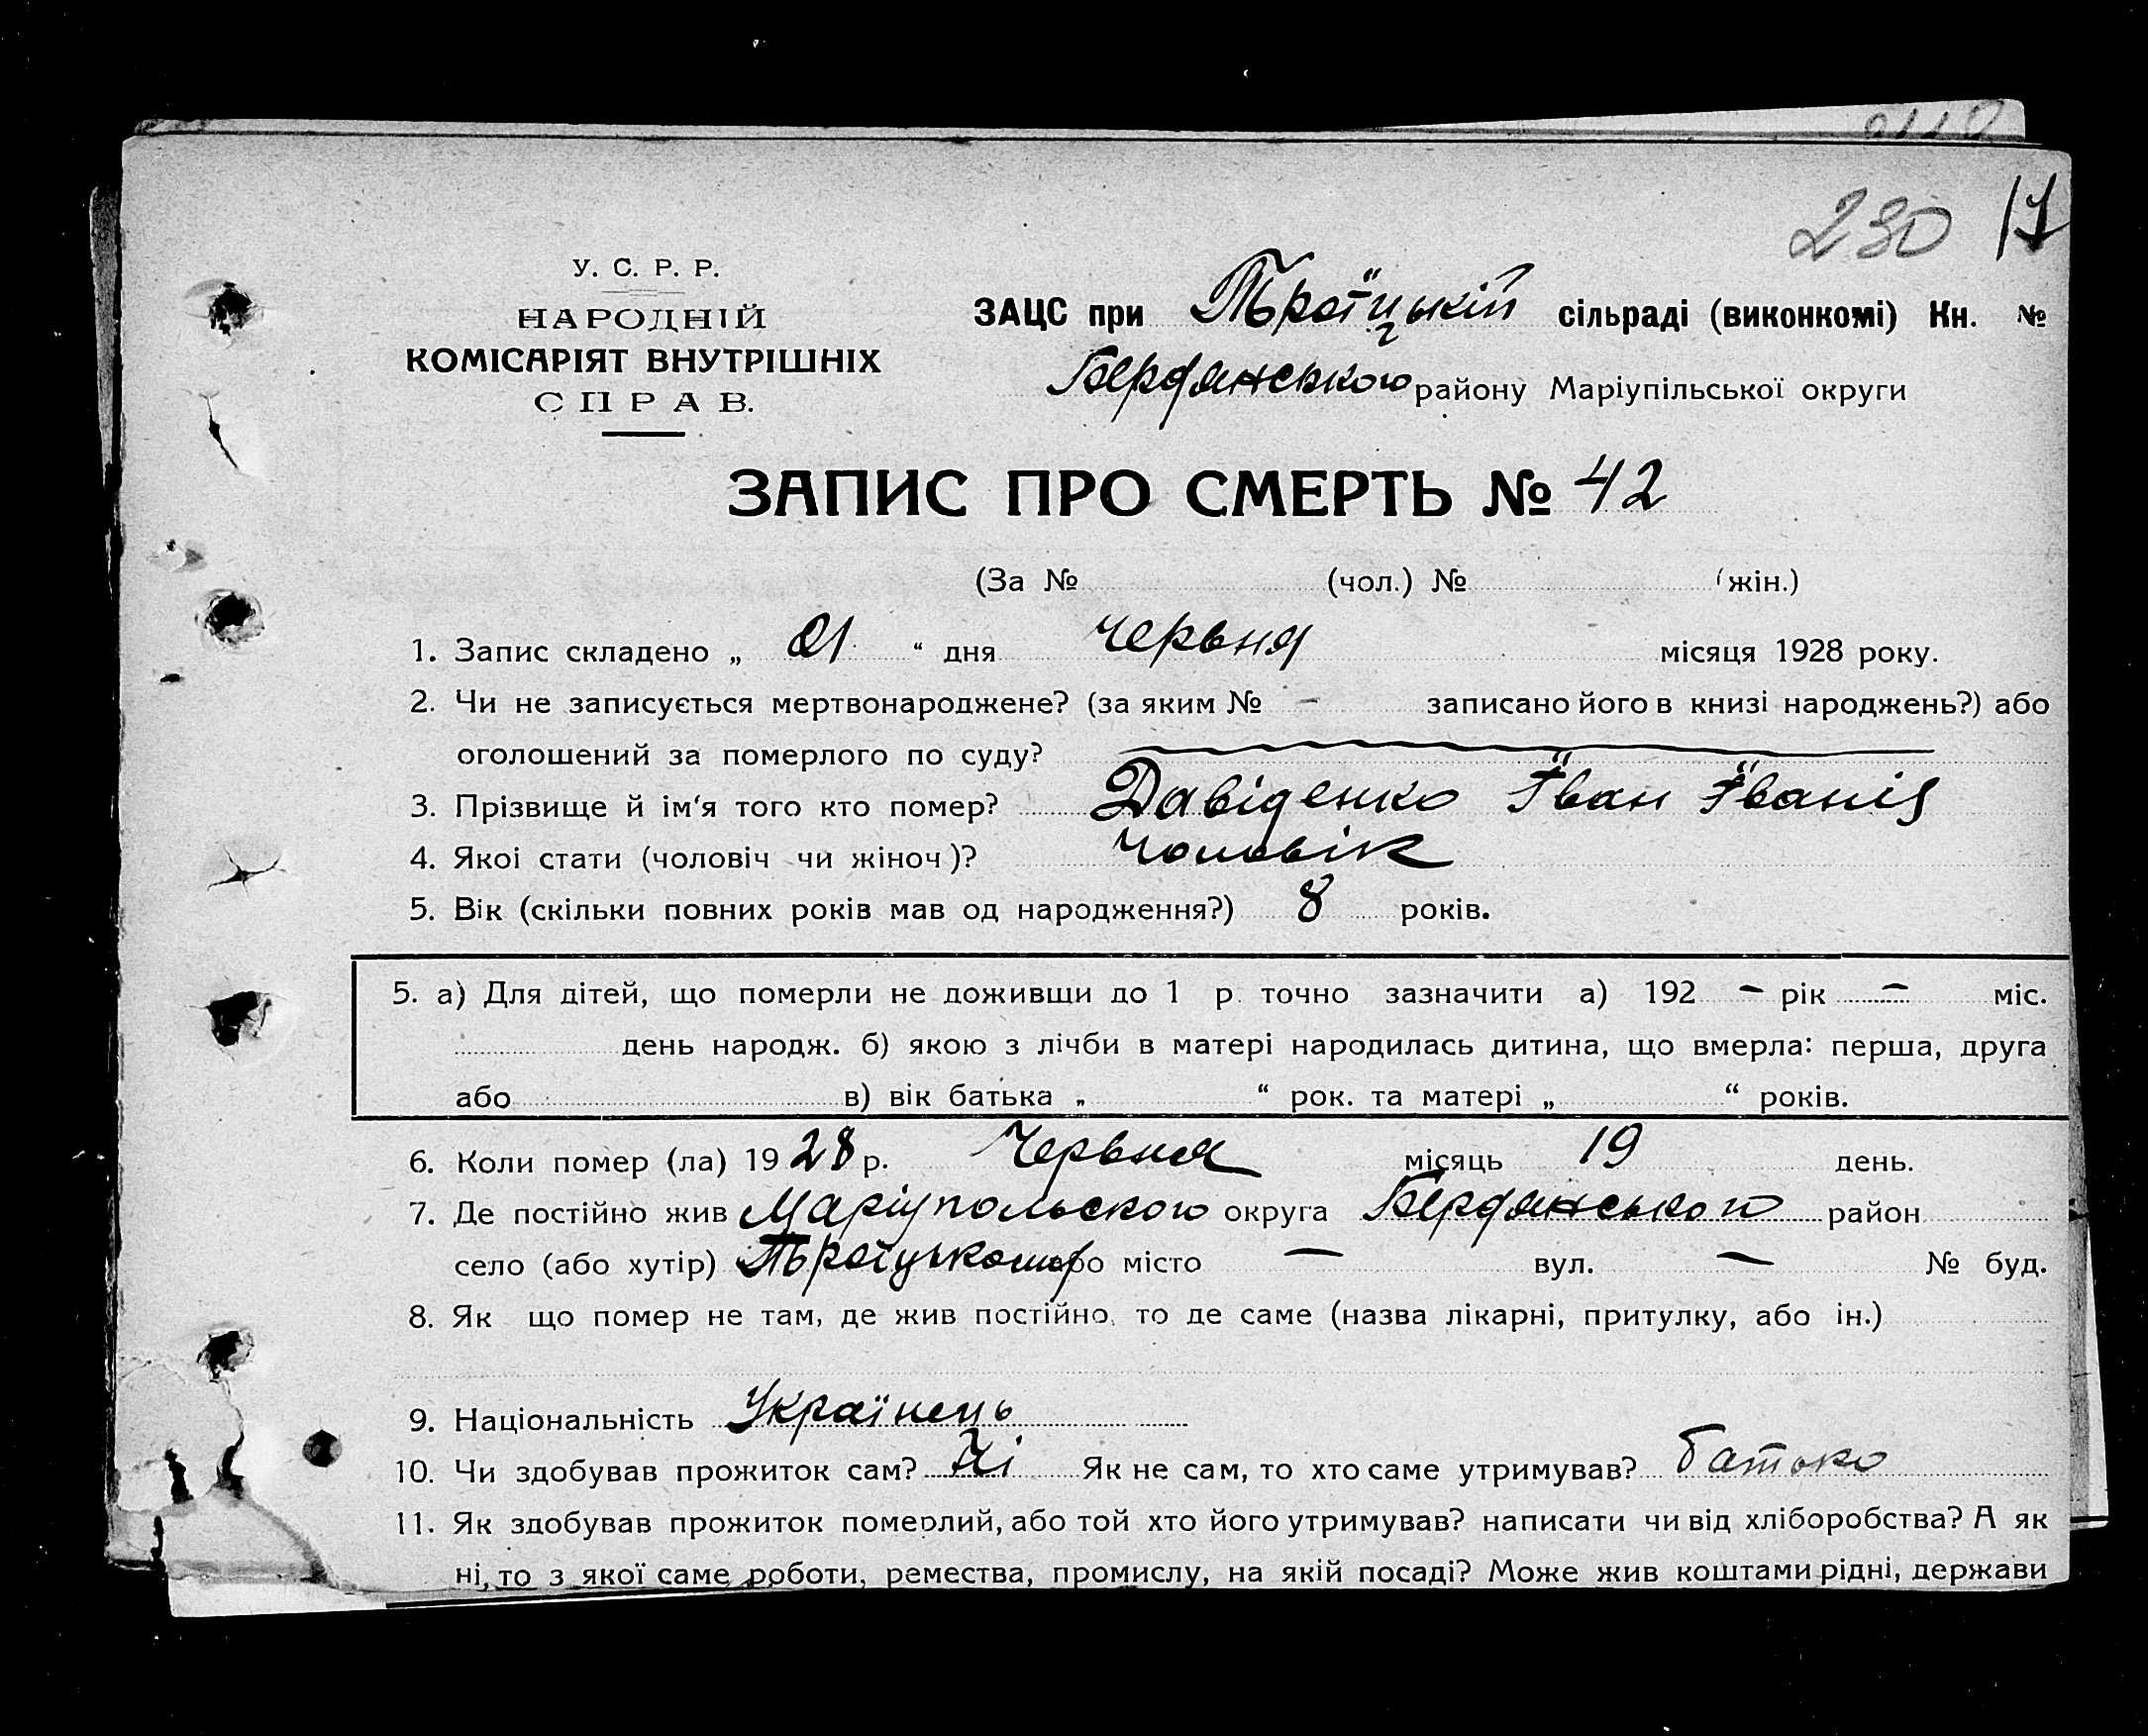 230 17
У. С. Р. Р.
НАРОДНІЙ
КОМІСАРІЯТ ВНУТРІШНІХ
СПРАВ.
ЗАЦС при Троїцькій сільраді (виконкомі) Кн. №
Бердянського району Маріупільської округи
ЗАПИС ПРО СМЕРТЬ № 42
(За № (чол.) № (жін.)
1. Запис складено „ 21 “ дня червня місяця 1928 року.
2. Чи не записується мертвонароджене? (за яким № – записано його в книзі народжень?) або
оголошений за померлого по суду?
3. Прізвище й ім'я того кто помер? Давіденко Іван Іванів
4. Якоі стати (чоловіч чи жіноч)? чоловік
5. Вік (скільки повних років мав од народження?) 8 років.
5. а) Для дітей, що померли не доживши до 1 р. точно зазначити а) 192 – рік – міс.
день народж. б) якою з лічби в матері народилась дитина, що вмерла: перша, друга
або в) вік батька „ “ рок. та матері „ “ років.
6. Коли помер (ла) 1928 р. Червня місяць 19 день.
7. Де постійно жив Маріупольского округа Бердянського район
село (або хутір) місто — вул. — № буд.
8. Як що помер не там, де жив постійно, то де саме (назва лікарні, притулку, або ін.)
9. Національність Українець
10. Чи здобував прожиток сам? Ні Як не сам, то хто саме утримував? батько
11. Як здобував прожиток померлий, або той хто його утримував? написати чи від хліборобства? А як
ні, то з якої саме роботи, ремества, промислу, на якій посаді? Може жив коштами рідні, держави